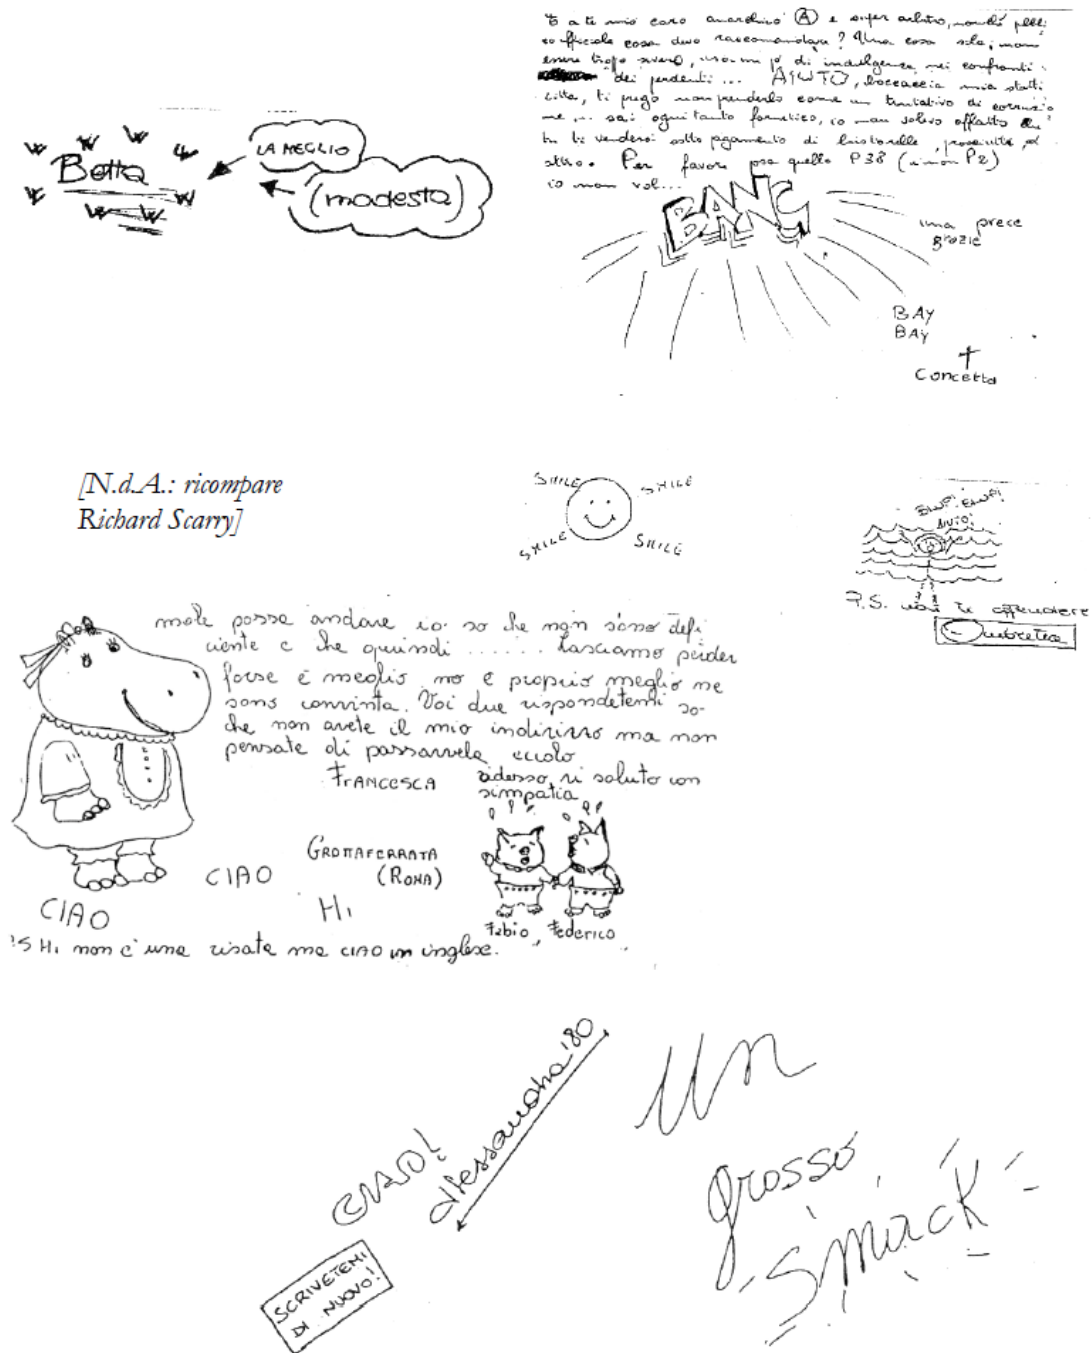 E a te mio caro anarchico Ⓐ e super arbitro, nonché
ufficiale cosa devo raccomandare? Una cosa sola; non
essere troppo severo, usa un pò di indulgenza nei confronti
dei perdenti ... AIUTO, boccaccia mia statti
zitta, ti prego non prenderlo come un tentativo di corruzio
ne ... sai ogni tanto farnetico, io non volevo affatto
ti venderei sotto pagamento di prosciutto,
altro. Per favore posa quella P38 (P2)
io non vol...
BANG
una prece
grazie
BAY
BAY
Concetta
W W W W
Betta
W W W W W
LA MEGLIO
(modesta)
[N.d.A.: ricompare
Richard Scarry]
SMILE SMILE
SMILE SMILE
P.S. non te offendere
male posso andare io so che non sono defi
ciente e che quindi ....... lasciamo perder
forse è meglio no è proprio meglio ne
sono convinta. Voi due rispondetemi so
che non avete il mio indirizzo ma non
pensate di passarvela eccolo
FRANCESCA
adesso vi saluto con
simpatia
GROTTAFERRATA
(ROMA)
CIAO
CIAO
Hi
Fabio Federico
S Hi non è una risata ma CIAO in inglese.
CIAO!
Alessandra '80
SCRIVETEMI
DI NUOVO!
Un
grosso
SMACK